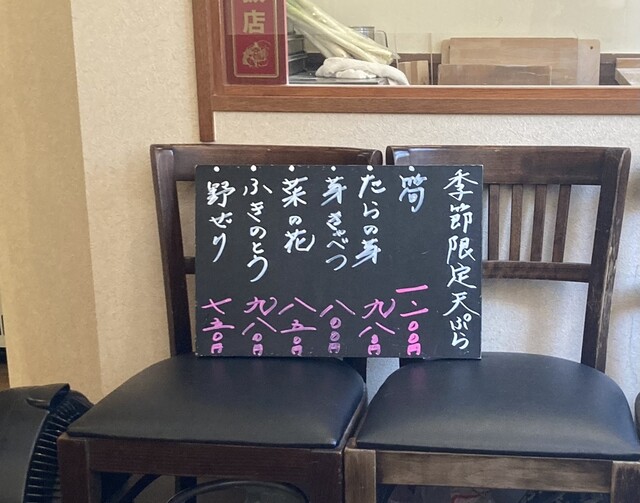 季節限定天ぷら
筍 一二〇〇円
たらの芽 九八〇円
芽きゃべつ 八〇〇円
菜の花 八五〇円
ふきのとう 九八〇円
野ぜり 七五〇円
店